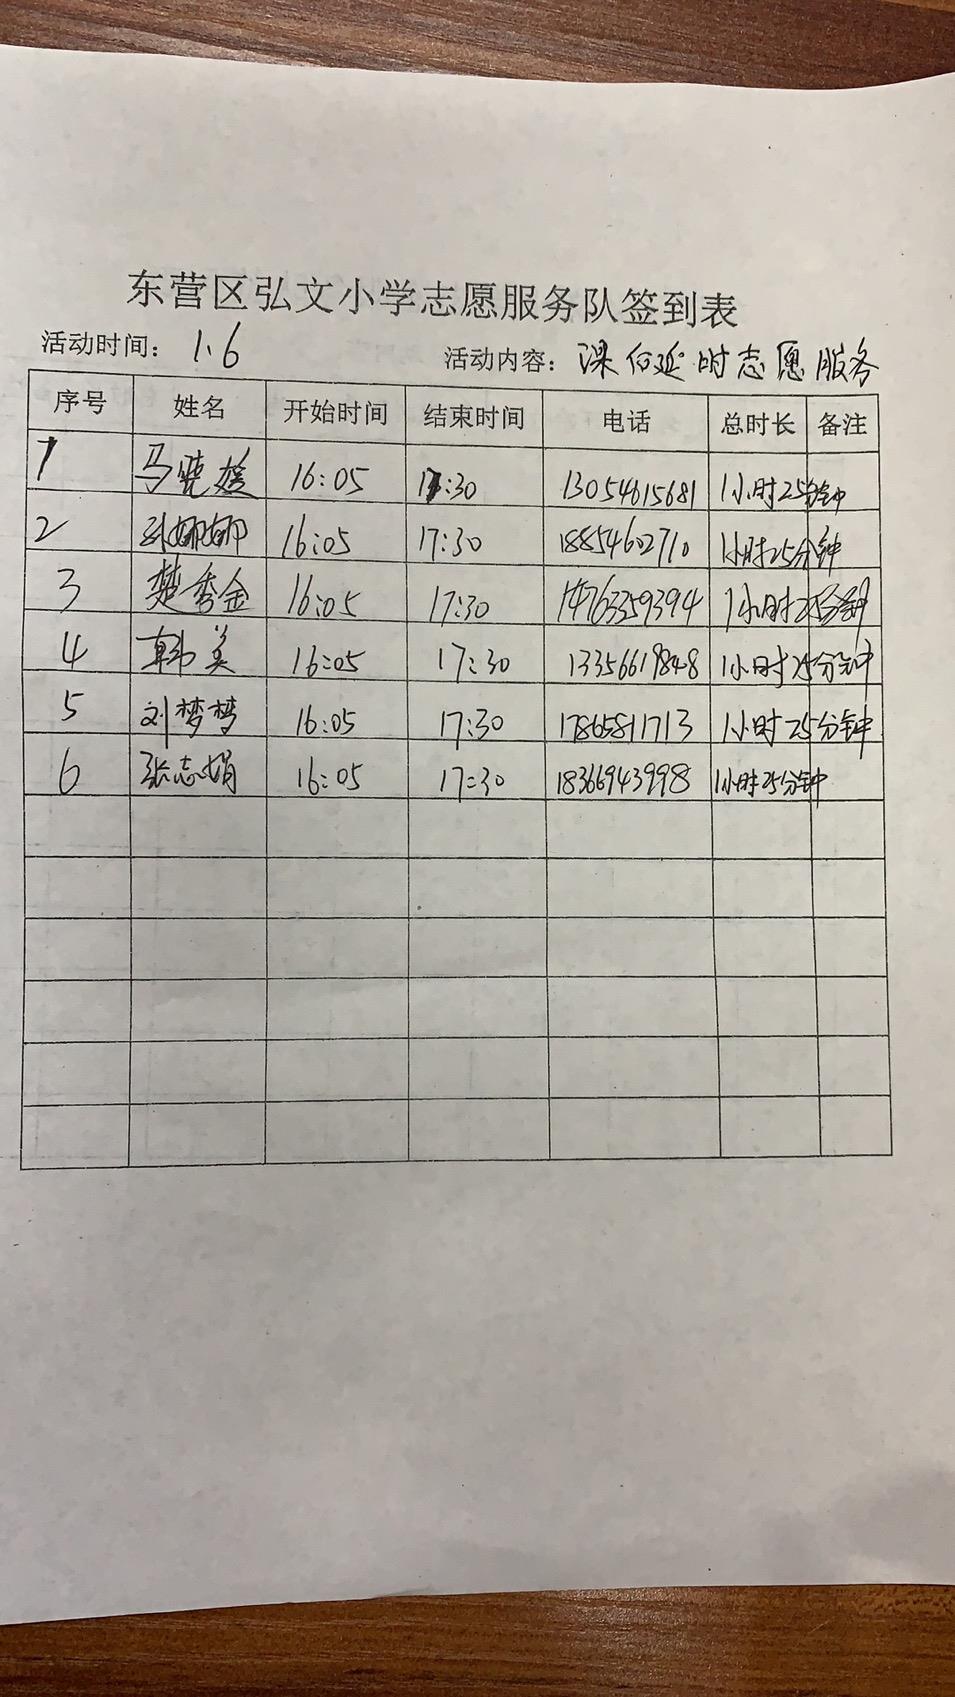 东营区弘文小学志愿服务队签到表
活动时间： 1.6 活动内容：课后延时志愿服务
序号 姓名 开始时间 结束时间 电话 总时长 备注
1 马晓媛 16:05 17:30 13054615681 1小时25分钟
2 孙娜娜 16:05 17:30 18854602710 1小时25分钟
3 楚秀金 16:05 17:30 14763359394 1小时25分钟
4 韩美 16:05 17:30 13356619848 1小时25分钟
5 刘梦梦 16:05 17:30 17865811713 1小时25分钟
6 张志娟 16:05 17:30 18366943998 1小时25分钟